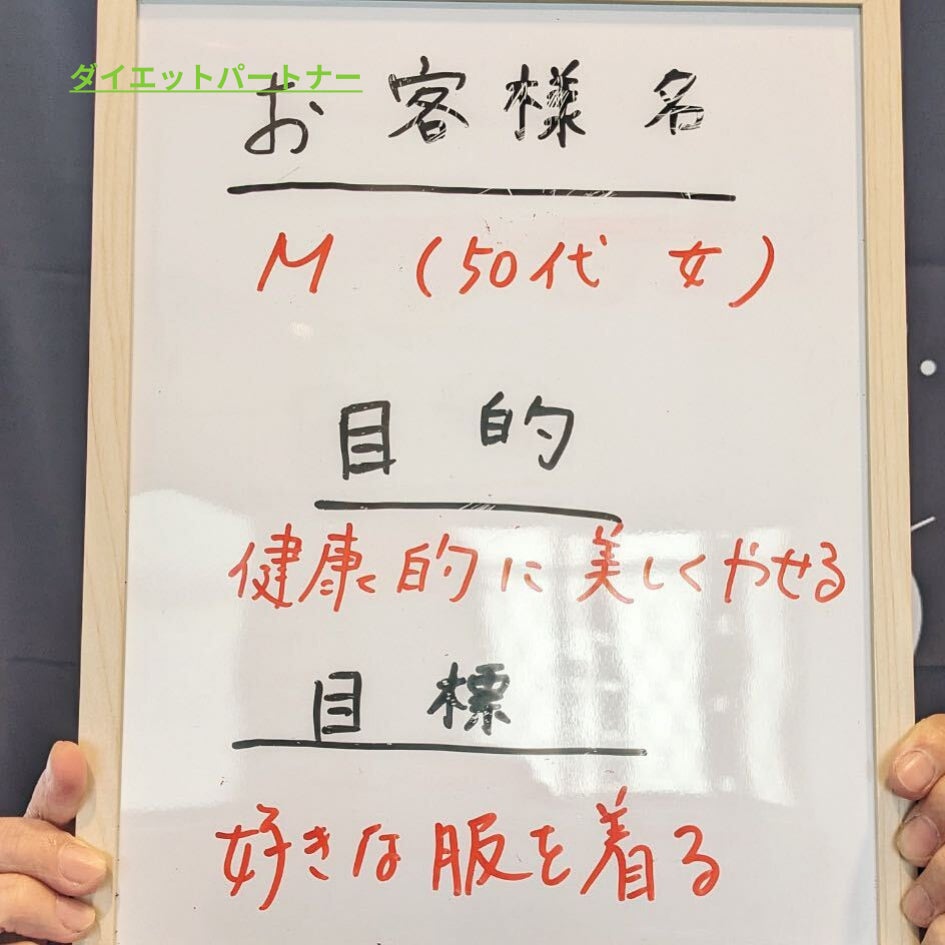 ダイエットパートナー
お客様名
M (50代 女)
目的
健康的に美しくやせる
目標
好きな服を着る